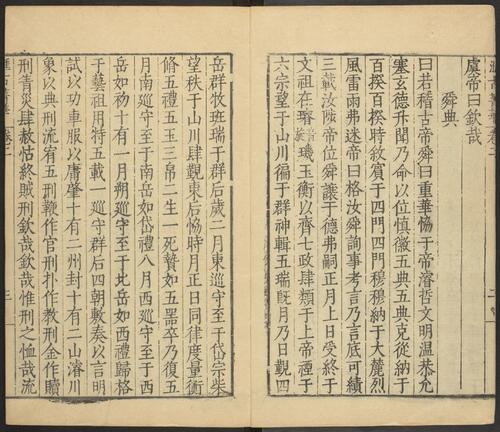 虞帝曰欽哉
舜典
曰若稽古帝舜曰重華協于帝濬哲文明温恭允
塞玄德升聞乃命以位慎徽五典五典克從納于
百揆百揆時敘賓于四門四門穆穆納于大麓烈
風雷雨弗迷帝曰格汝舜詢事考言乃言底可績
三載汝陟帝位舜讓于德弗嗣正月上日受終于
文祖在璿璣玉衡以齊七政肆類于上帝禋于
六宗望于山川徧于群神輯五瑞既月乃日覲四
岳群牧班瑞于群后歲二月東巡守至于岱宗柴
望秩于山川肆覲東后恊時月正日同律度量衡
脩五禮五玉三帛二生一死贄如五器卒乃復五
月南巡守至于南岳如岱禮八月西巡守至于西
岳如初十有一月朔巡守至于北岳如西禮歸格
于藝祖用特五載一巡守群后四朝敷奏以言明
試以功車服以庸肇十有二州封十有二山濬川
象以典刑流宥五刑鞭作官刑扑作教刑金作贖
刑眚災肆赦怙終賊刑欽哉欽哉惟刑之恤哉流